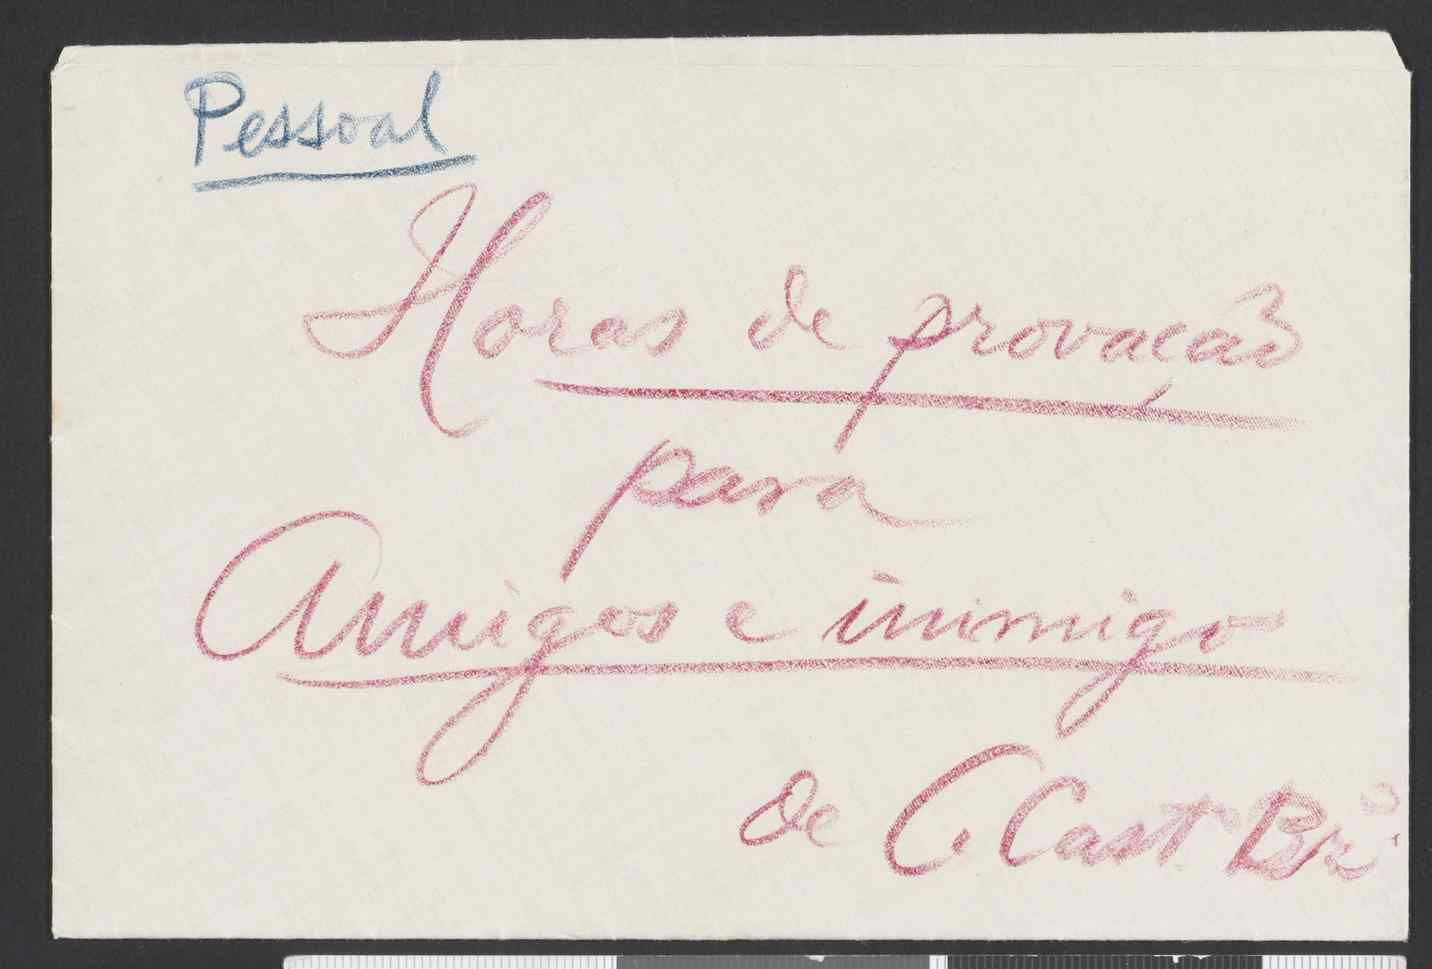 Pessoal
Horas de provação
para
Amigos e inimigo
de C. Cast. Br.º